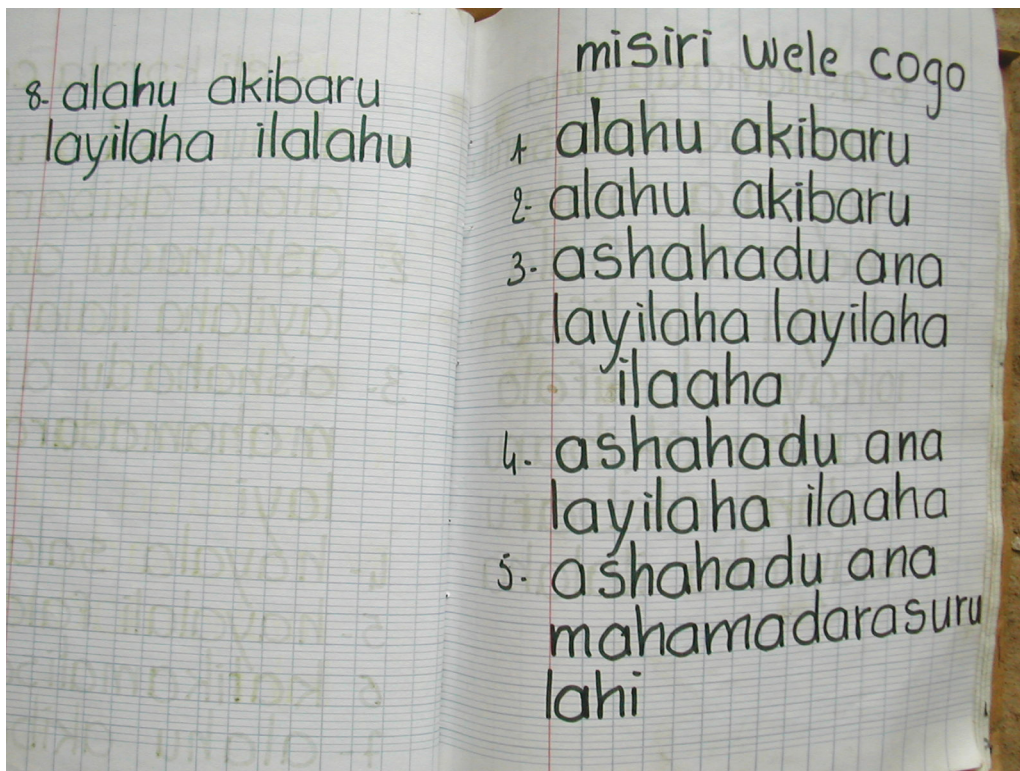 8- alahu akibaru
layilaha ilalahu
misiri wele cogo
1 alahu akibaru
2- alahu akibaru
3- ashahadu ana
layilaha layilaha
ilaaha
4- ashahadu ana
layilaha ilaaha
5- ashahadu ana
mahamadarasuru
lahi